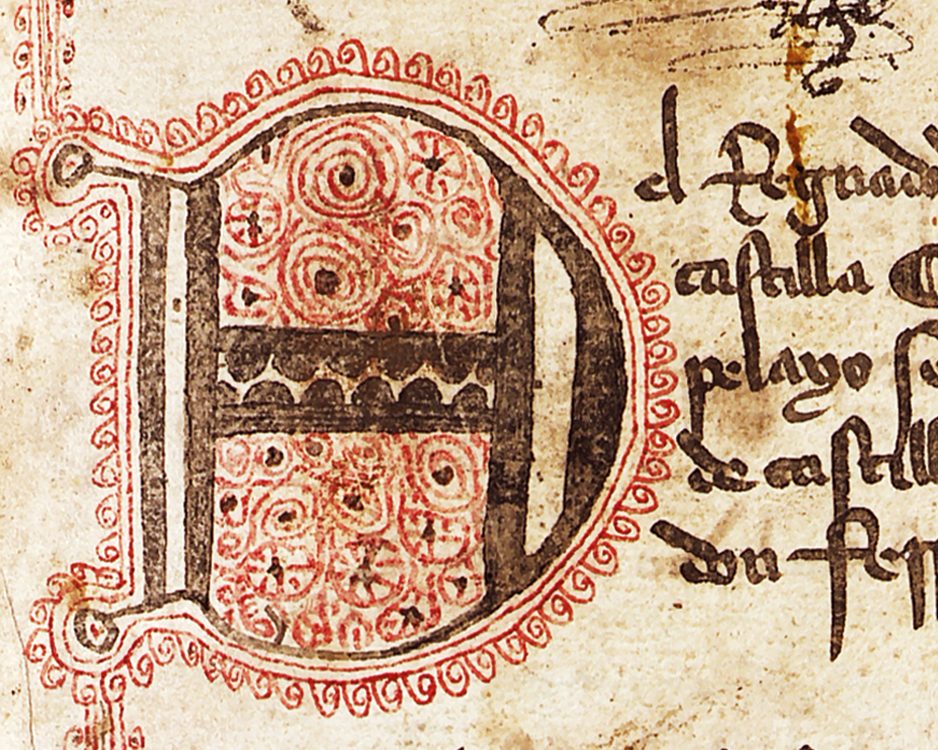 D
el Regnado
castilla
pelayo
de castill
don ferr